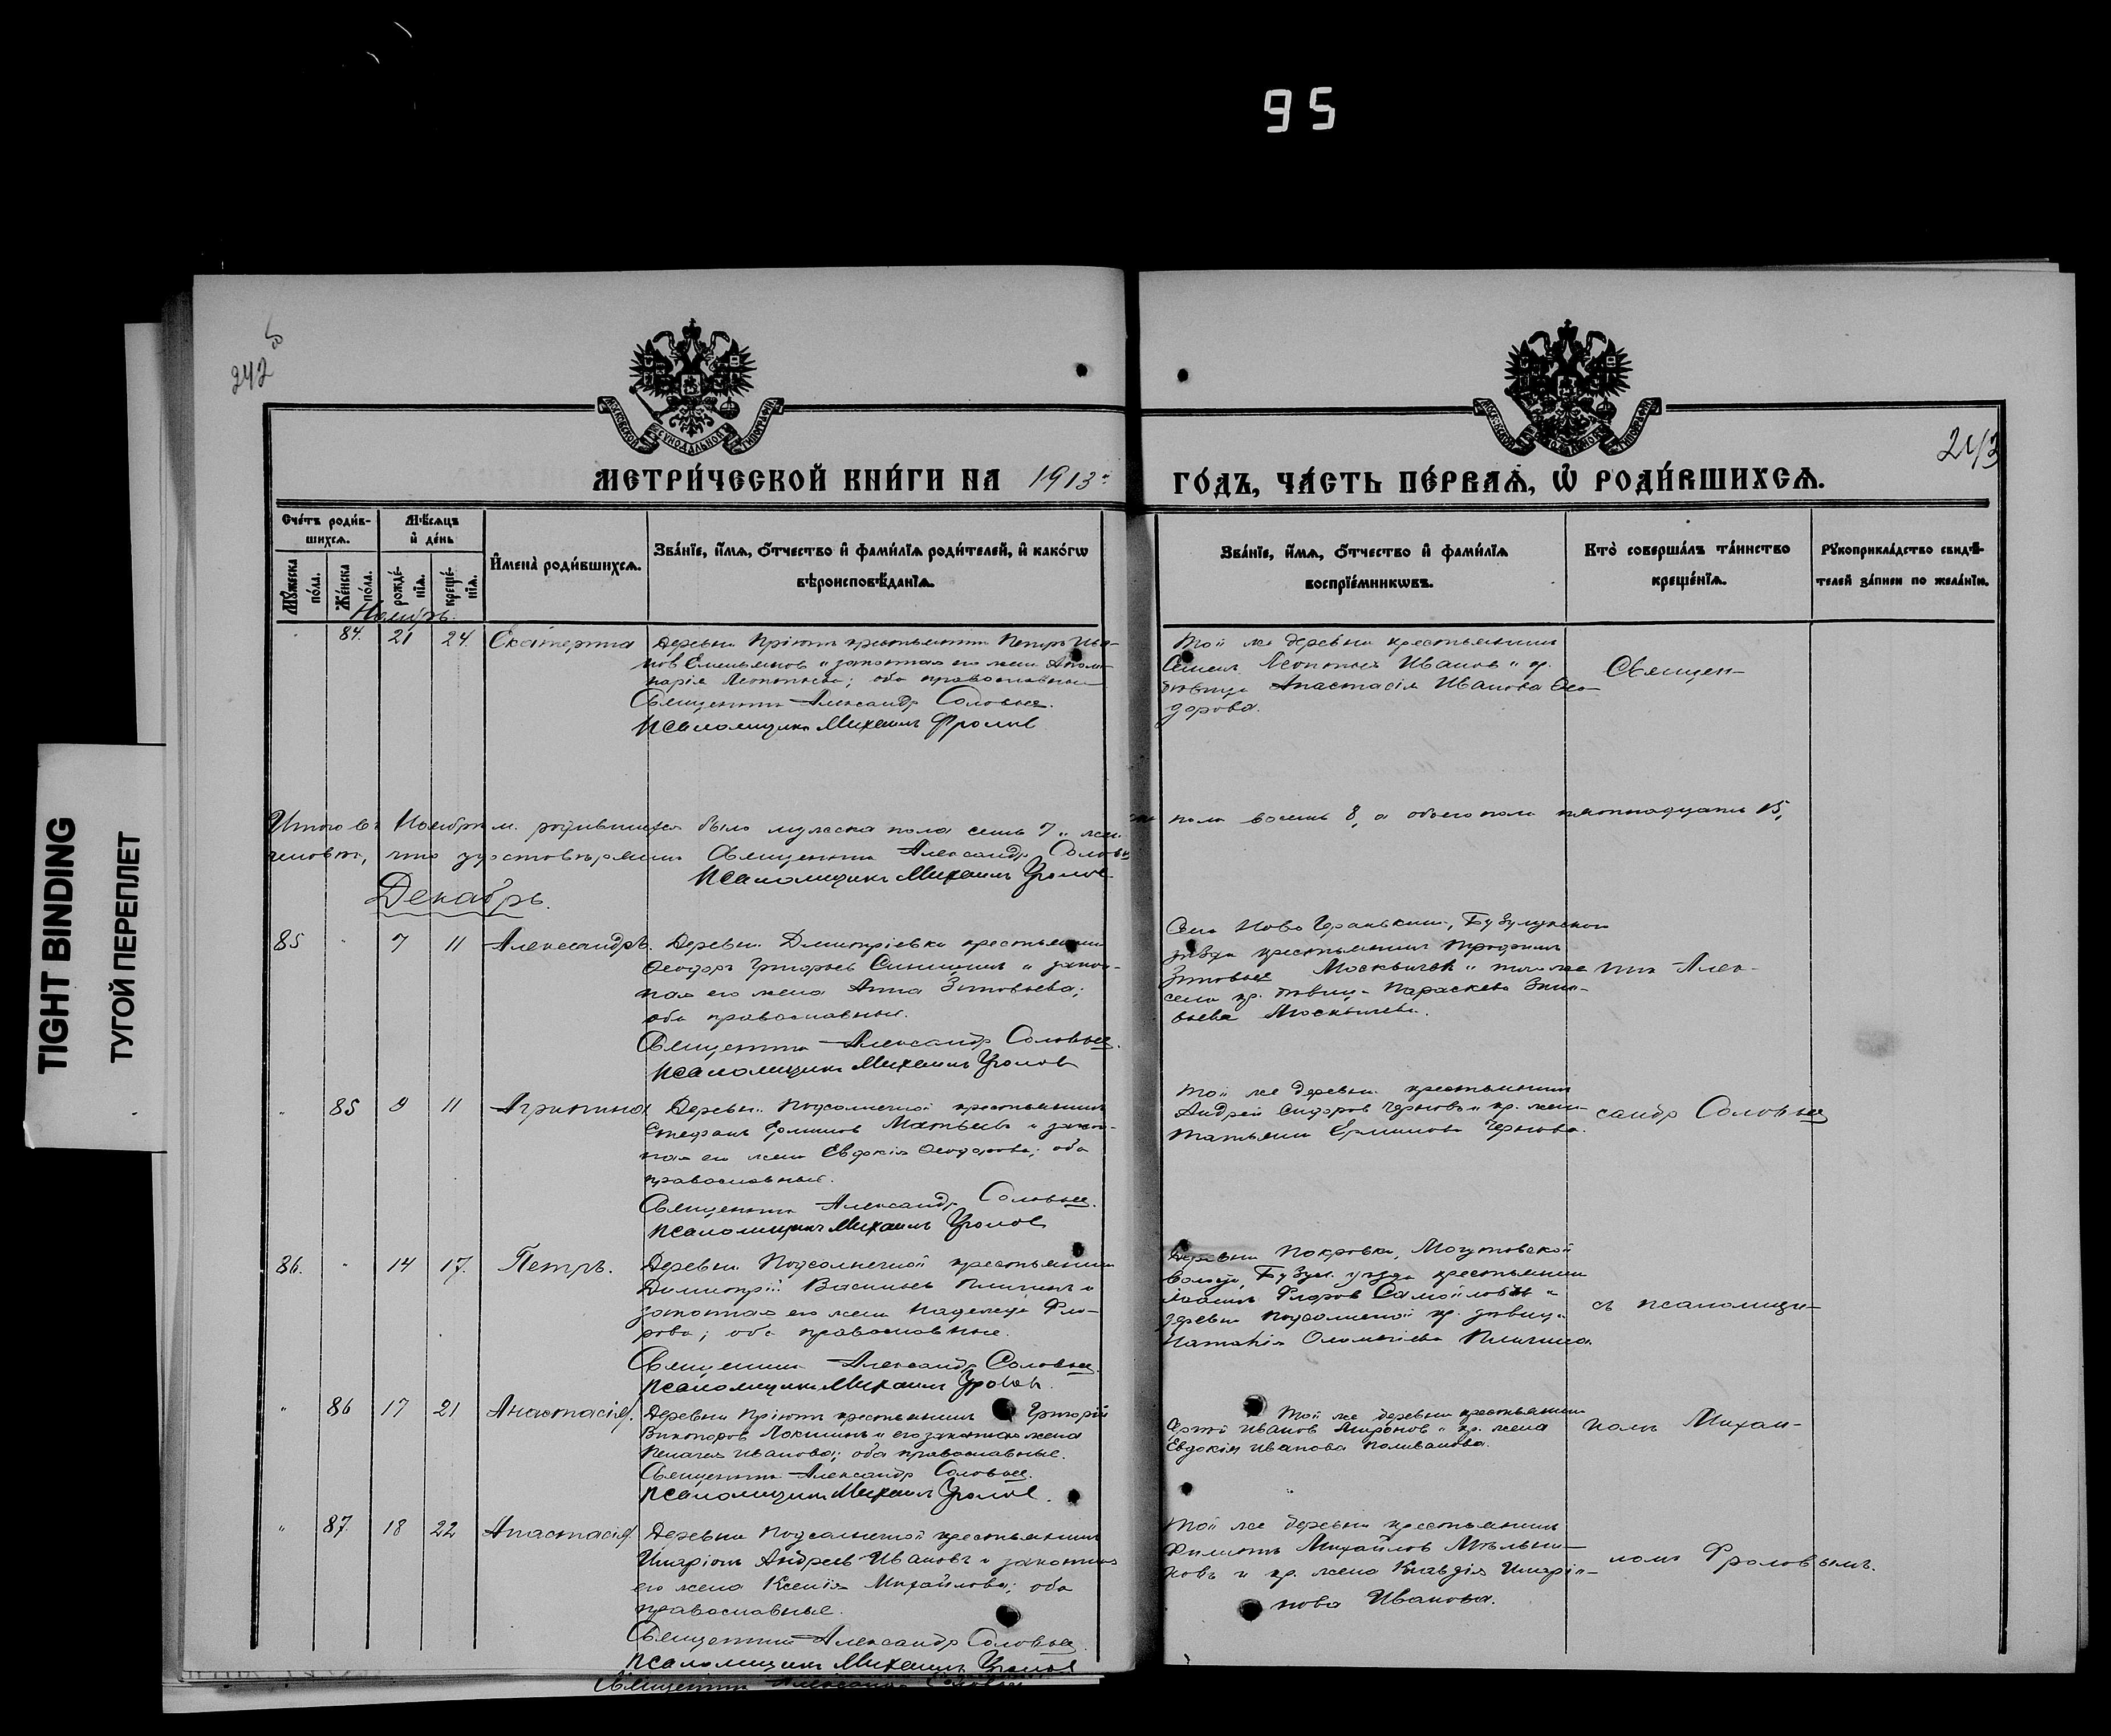 95
242 об
243
МОСКОВСКОЙ СѴНОДАЛЬНОЙ ТИПОГРАФІИ
МОСКОВСКОЙ СѴНОДАЛЬНОЙ ТИПОГРАФІИ
МЕТРИ́ЧЕСКОЙ КНИ́ГИ НА 1913 й ГО́ДЪ, ЧА́СТЬ ПЕ́РВАѦ, Ѡ҆ РОДИ́ВШИХСѦ.
Сче́тъ роди́в-
шихсѧ.
Мꙋ́жеска по́ла.
Же́нска по́ла.
Мѣ́сѧцъ
и҆ де́нь
рожде́нїѧ.
креще́нїѧ.
И҆мена̀ роди́вшихсѧ.
Зва́нїе, и҆́мѧ, ѻ҆́тчество и҆ фами́лїѧ роди́телей, и҆ како́гѡ
вѣроисповѣ́данїѧ.
Зва́нїе, и҆́мѧ, ѻ҆́тчество и҆ фами́лїѧ
воспрїе́мникѡвъ.
Кто̀ соверша́лъ та́инство
креще́нїѧ.
Рꙋкоприкла́дство свидѣ́-
телей за́писи по жела́нїю.
Ноябрь.
84. 21 24. Екатерина
Деревни Пріютъ крестьянинъ Петръ Ива-
новъ Емельяновъ и законная его жена Апали-
нарія Леонтьева; оба православные
Священникъ Александръ Соловьев.
Псаломщикъ Михаилъ Фролов
Той же деревни крестьянинъ
Семенъ Леонтьев Ивановъ и кр.
дѣвица Анастасія Иванова Ѳео-
дорова.
Священ-
Итого въ Ноябрѣ м. родившихся было мужеска пола семь 7 и жен-
ска пола восемь 8, а обоего пола пятнадцать 15,
человѣкъ, что удостовѣряемъ Священникъ Александръ Соловьев
Псаломщикъ Михаилъ Фролов
Декабрь.
85 " 7 11 Александръ.
Деревни Дмитріевки крестьянинъ
Ѳеодоръ Григорьев Синицинъ и закон-
ная его жена Анна Зиновьева;
оба православные.
Священникъ Александръ Соловьев.
Псаломщикъ Михаилъ Фролов
уѣзда крестьянинъ Трофимъ
Зиновьев Москвичев и того же
села кр. дѣвица Параскева Зино-
вьева Москвичева.
никъ Алек-
" 85 9 11 Агрипина
Деревни Подсолнечной крестьянинъ
Стефанъ Матвеевъ и закон-
ная его жена Евдокія Ѳеодорова; оба
православные.
Священникъ Александръ Соловьев.
Псаломщикъ Михаилъ Фролов
Той же деревни крестьянинъ
Андрей Сидоров Чернов и кр. жена
Татьяна Чернова.
сандръ Соловьев
86. " 14 17. Петръ.
Деревни Подсолнечной крестьянинъ
Димитрій Васильев и
законная его жена Надежда Фло-
рова; оба православные.
Священникъ Александръ Соловьев.
Псаломщикъ Михаилъ Фролов.
Деревни Покровки, Могутовской
волости, Бузул. уѣзда крестьянинъ
Флоров Самойловъ и
деревни Подсолнечной кр. дѣвица
Наталія
съ псаломщи-
" 86 17 21 Анастасія.
Деревни Пріютъ крестьянинъ Григорій
Викторов Локшинъ и его законная жена
Пелагея Иванова; оба православные.
Священникъ Александръ Соловьев.
Псаломщикъ Михаилъ Фролов.
Той же деревни крестьянинъ
Сергѣй Иванов Миронов и кр. жена
Евдокія Иванова Поливанова.
комъ Михаи-
" 87. 18 22 Анастасія.
Деревни Подсолнечной крестьянинъ
Иларіонъ Андреев Ивановъ и законная
его жена Ксенія Михайлова; оба
православные.
Священникъ Александръ Соловьев
Псаломщикъ Михаилъ Фролов
Той же деревни крестьянинъ
Филиппъ Михайлов Мѣльни-
ковъ и кр. жена Клавдія Иларіо-
нова Иванова.
ломъ Фроловымъ.
Священникъ Александръ Соловьев
TIGHT BINDING
ТУГОЙ ПЕРЕПЛЕТ